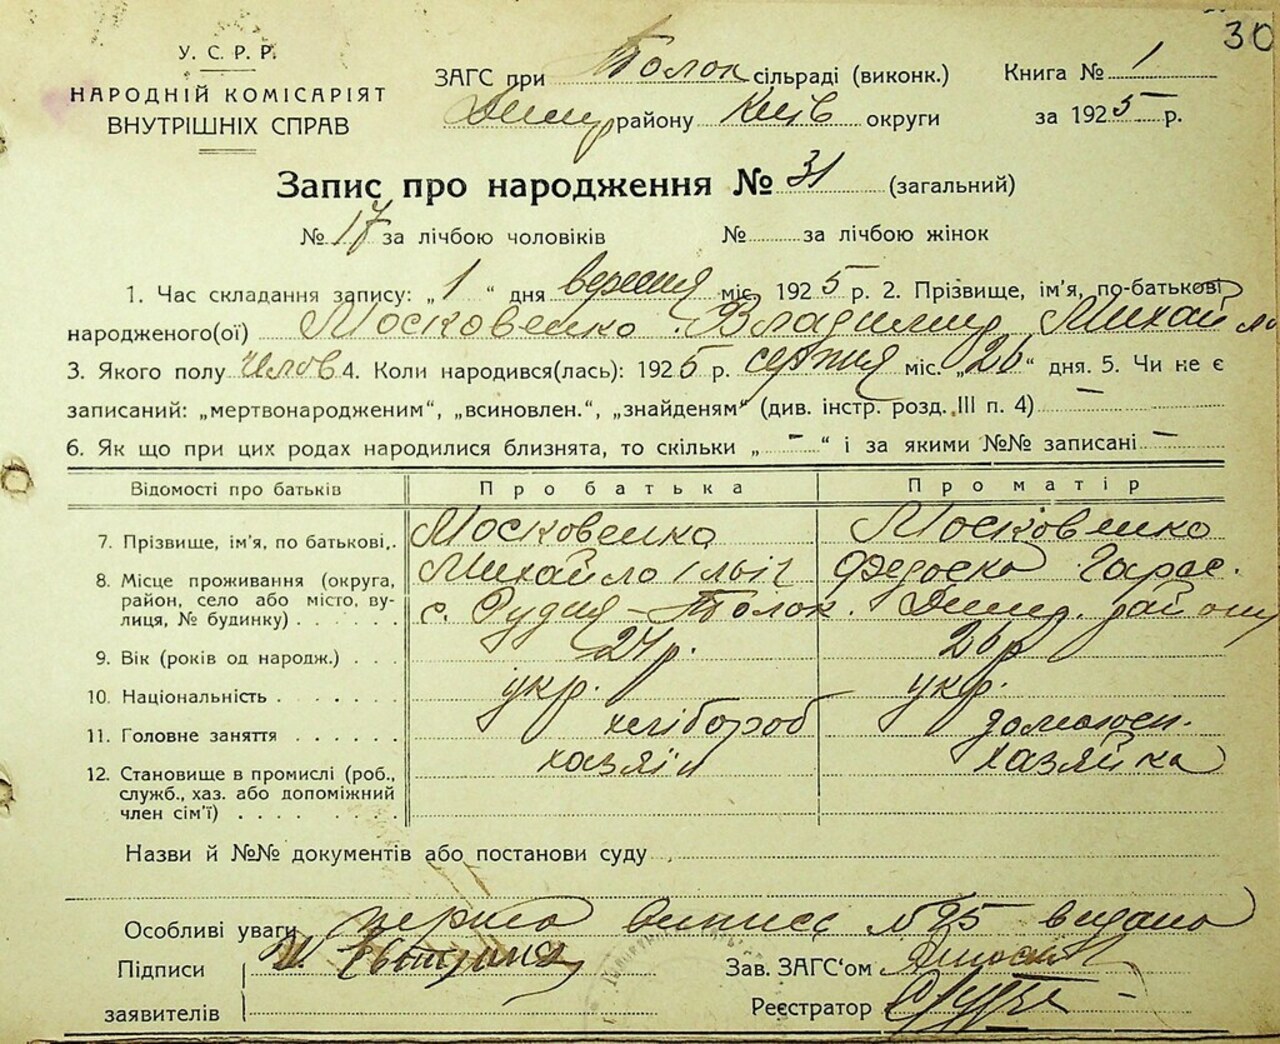 30
У. С. Р. Р.
НАРОДНІЙ КОМІСАРІЯТ
ВНУТРІШНІХ СПРАВ
ЗАГС при Толок сільраді (виконк.)
Димр району Київ округи
Книга № 1
за 1925 р.
Запис про народження № 31 (загальний)
№ 17 за лічбою чоловіків № за лічбою жінок
1. Час складання запису: „1“ дня вересня міс. 1925 р. 2. Прізвище, ім'я, по-батькові
народженого(ої) Московенко Владимир Михайло
3. Якого полу чолов 4. Коли народився(лась): 1925 р. серпня міс. „26“ дня. 5. Чи не є
записаний: „мертвонародженим“, „всиновлен.“, „знайденям“ (див. інстр. розд. III п. 4) —
6. Як що при цих родах народилися близнята, то скільки „ - “ і за якими №№ записані —
Відомості про батьків Про батька Про матір
7. Прізвище, ім'я, по батькові,. Московенко Московенко
Михайло Ільіч Федоска Гарас.
8. Місце проживання (округа,
район, село або місто, ву-
лиця, № будинку) с. Рудня-Толок. Димер. району
9. Вік (років од народж.) 24р. 26р
10. Національність укр. укр.
11. Головне заняття хлібороб домогосп.
12. Становище в промислі (роб.,
служб., хаз. або допоміжний
член сім'ї) хазяїн хазяйка
Назви й №№ документів або постанови суду
Особливі уваги перша виписс №95 видано
Підписи
заявителів
Зав. ЗАГС'ом
Реєстратор